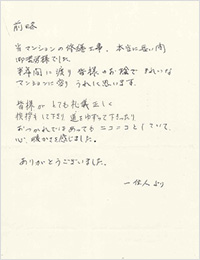 前略
当マンションの修繕工事、本当に長い間
御苦労様でした。
半年間に渡り皆様のお陰できれいな
マンションに蘇り うれしく思います。
皆様がとても礼儀正しく
挨拶をして下さり 道をゆずって下さったり
おつかれではあっても ニコニコとしていて、
心、暖かさを感じました。
ありがとうございました。
一住人より